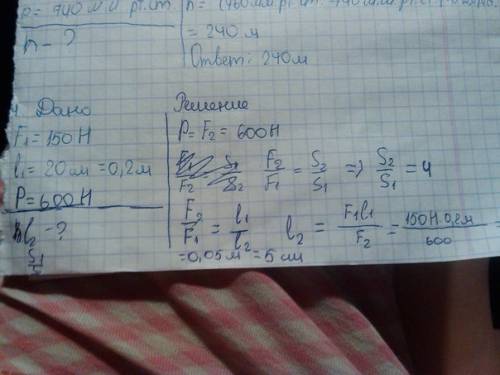 p = 740 мм рт.ст.
h - ?
= 240 м
Ответ: 240м
Дано
F₁ = 150Н
l₁ = 20см = 0,2м
P = 600Н
l₂ - ?
Решение
P = F₂ = 600Н
F₂/F₁ = S₂/S₁ => S₂/S₁ = 4
F₂/F₁ = l₁/l₂ l₂ = F₁l₁/F₂ = 150Н·0,2м/600 =
= 0,05м = 5см